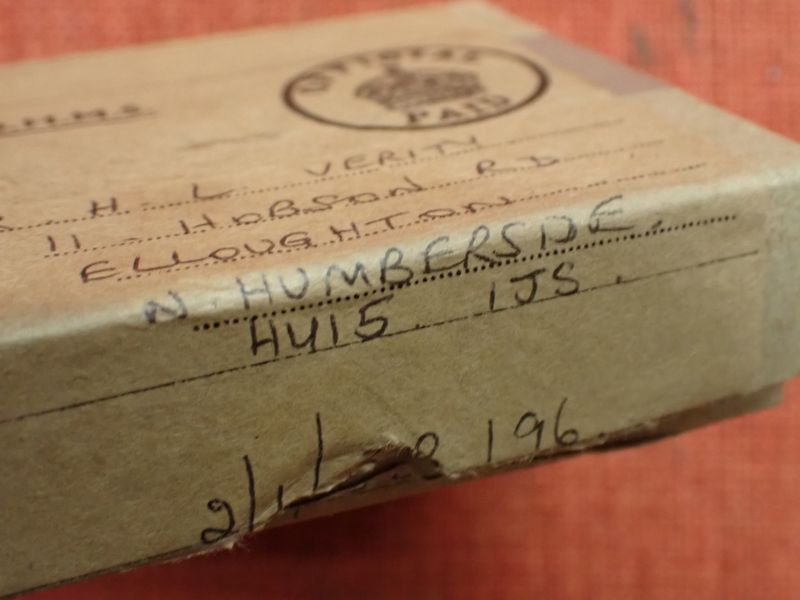 OHMS
OFFICIAL
PAID
H. L. VERITY
11 . HOBSON RD
ELLOUGHTON
N. HUMBERSIDE.
HU15. 1JS.
2/1/ 8 196